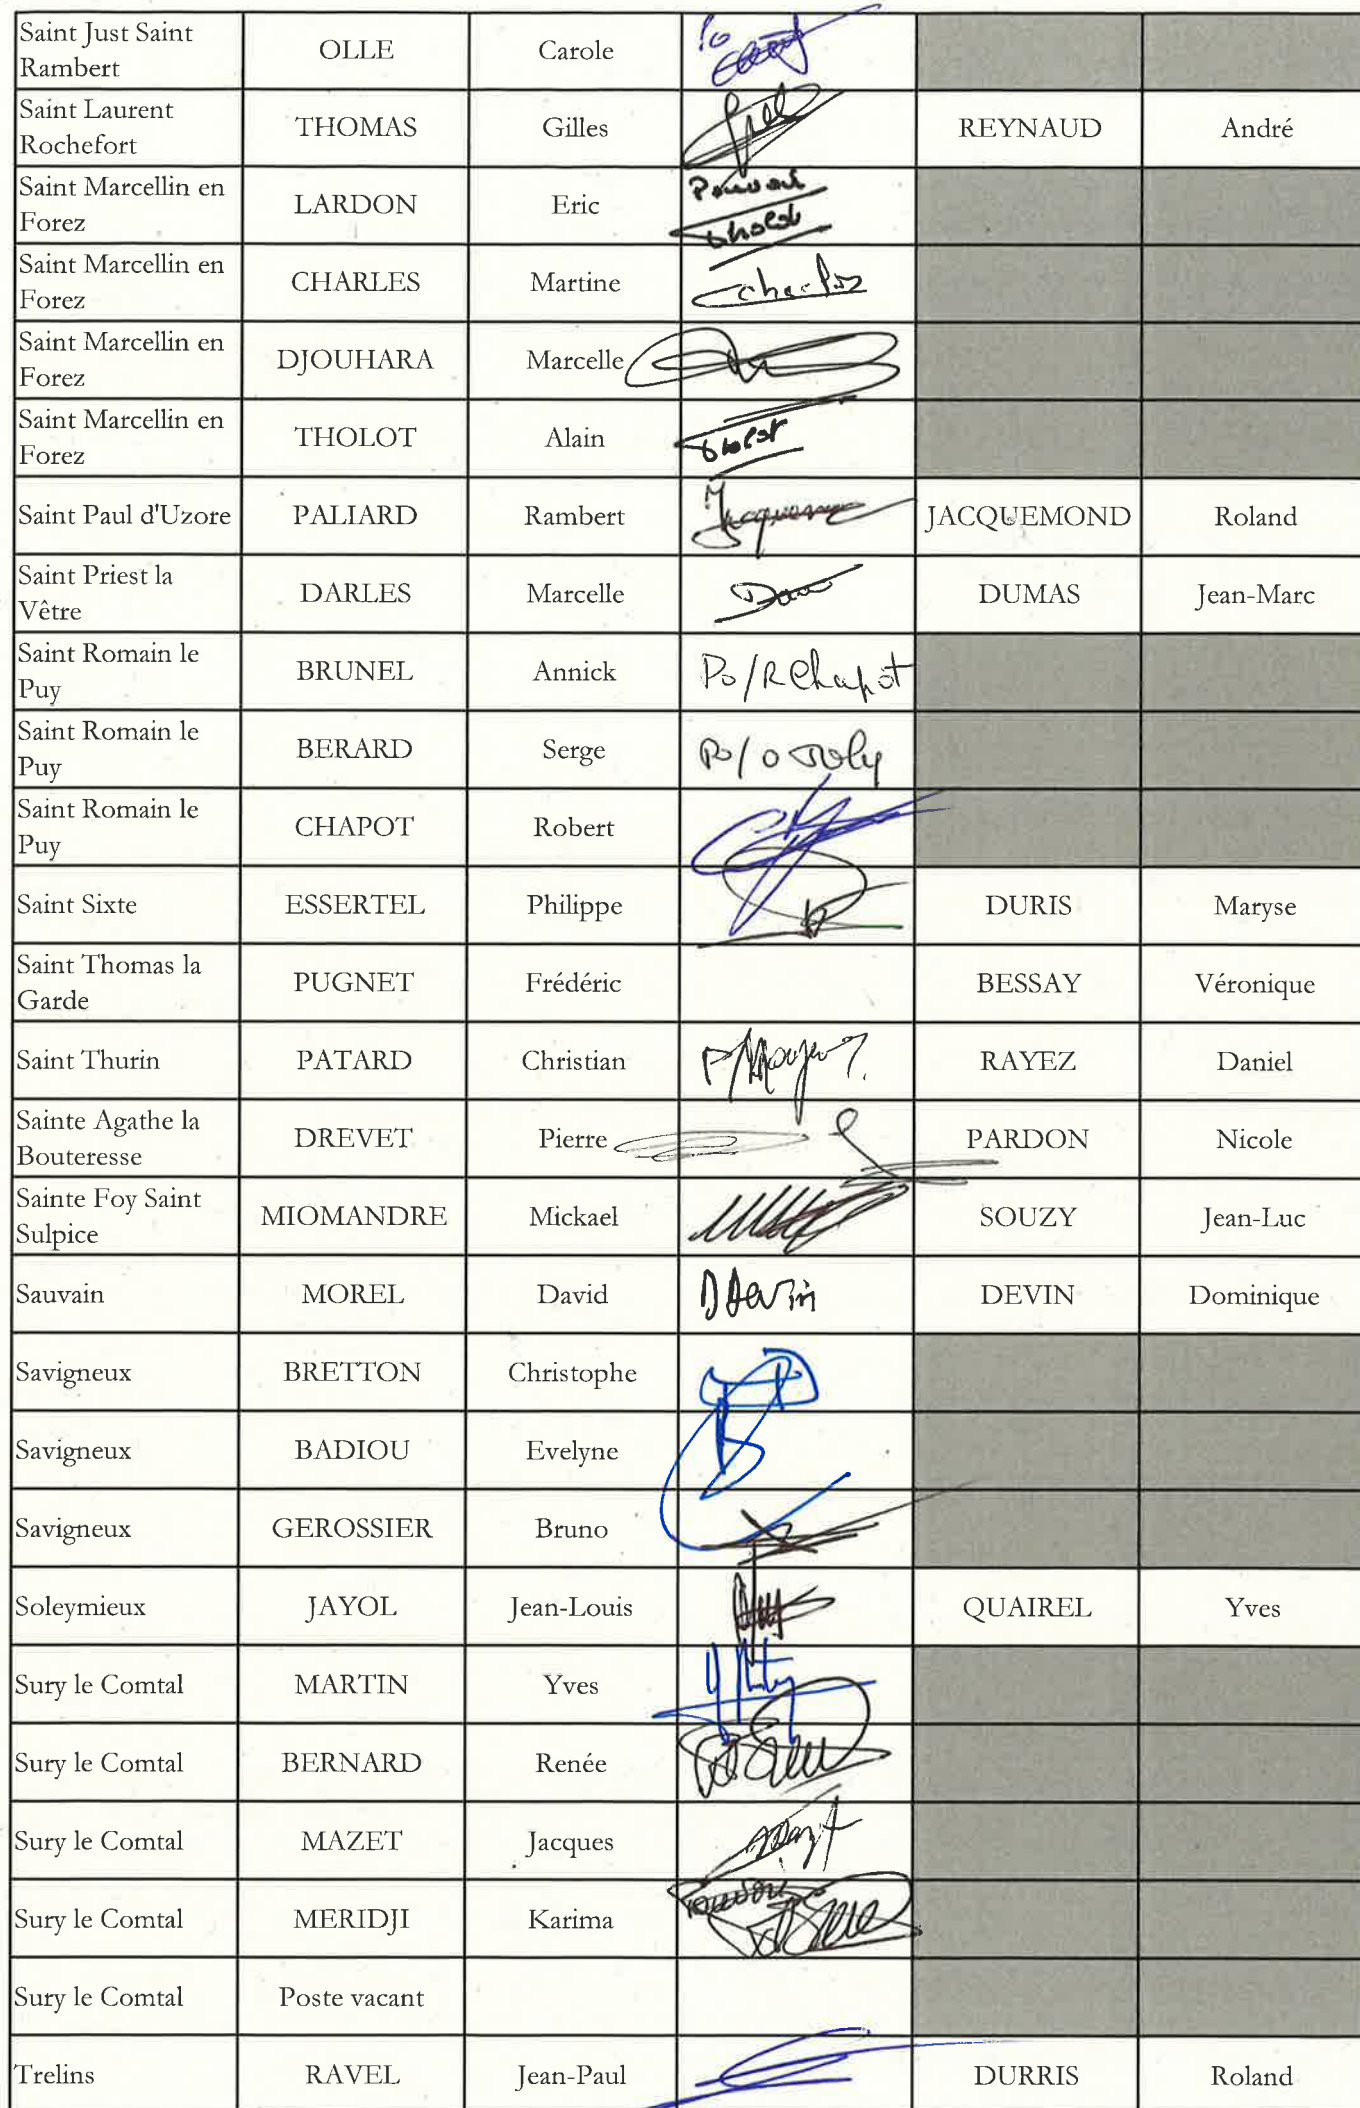 Saint Just Saint Rambert OLLE Carole Po
Saint Laurent Rochefort THOMAS Gilles REYNAUD André
Saint Marcellin en Forez LARDON Eric Pouvoir Tholot
Saint Marcellin en Forez CHARLES Martine Charles
Saint Marcellin en Forez DJOUHARA Marcelle
Saint Marcellin en Forez THOLOT Alain Tholot
Saint Paul d'Uzore PALIARD Rambert JACQUEMOND Roland
Saint Priest la Vêtre DARLES Marcelle DUMAS Jean-Marc
Saint Romain le Puy BRUNEL Annick Po/R Chapot
Saint Romain le Puy BERARD Serge Po/O Joly
Saint Romain le Puy CHAPOT Robert
Saint Sixte ESSERTEL Philippe DURIS Maryse
Saint Thomas la Garde PUGNET Frédéric BESSAY Véronique
Saint Thurin PATARD Christian RAYEZ Daniel
Sainte Agathe la Bouteresse DREVET Pierre PARDON Nicole
Sainte Foy Saint Sulpice MIOMANDRE Mickael SOUZY Jean-Luc
Sauvain MOREL David D Devin DEVIN Dominique
Savigneux BRETTON Christophe
Savigneux BADIOU Evelyne
Savigneux GEROSSIER Bruno
Soleymieux JAYOL Jean-Louis QUAIREL Yves
Sury le Comtal MARTIN Yves
Sury le Comtal BERNARD Renée
Sury le Comtal MAZET Jacques
Sury le Comtal MERIDJI Karima Pouvoir
Sury le Comtal Poste vacant
Trelins RAVEL Jean-Paul DURRIS Roland